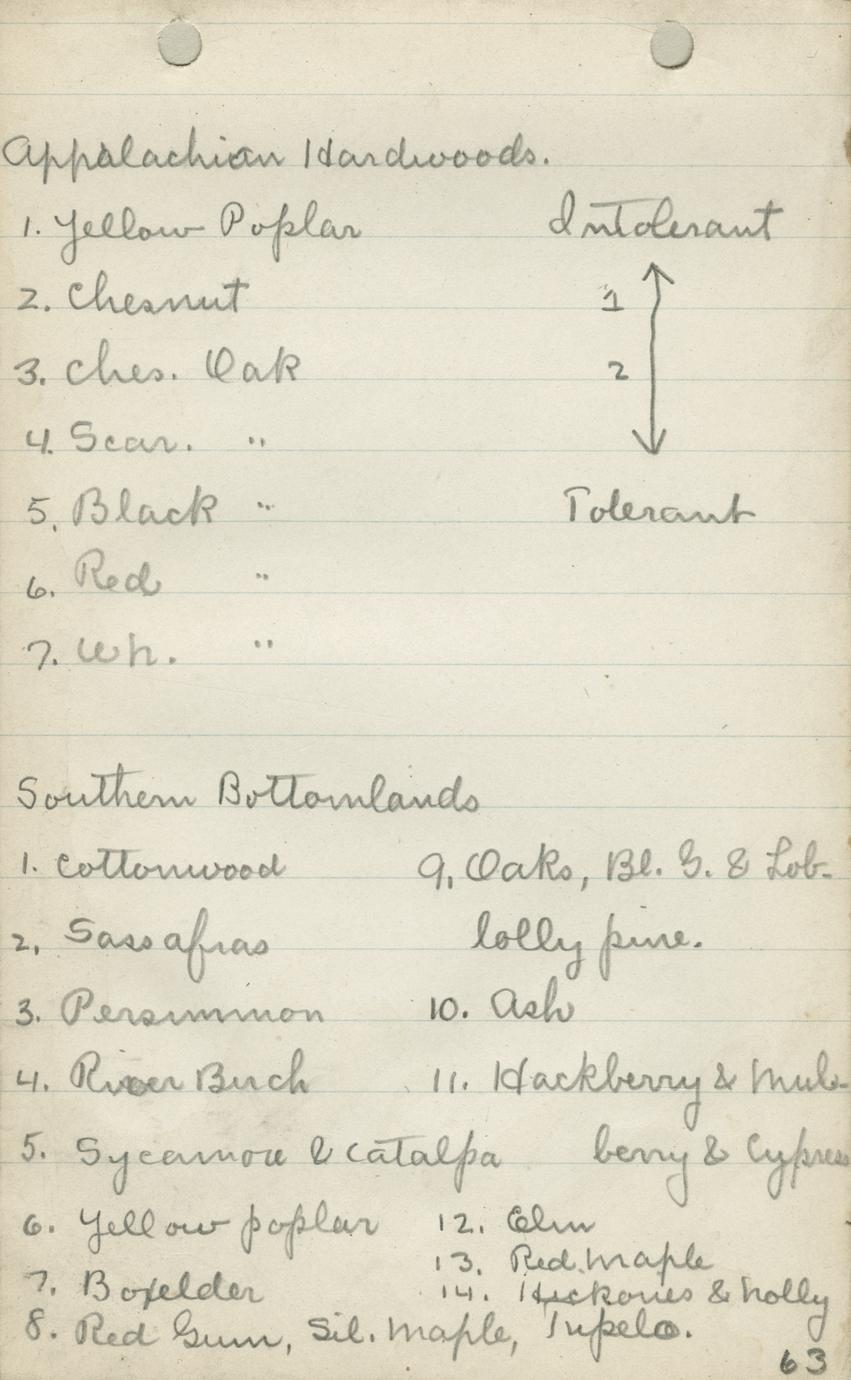 Appalachian Hardwoods.
1. Yellow Poplar
2. Chesnut
3. Ches. Oak
4. Scar. "
5. Black "
6. Red "
7. Wh. "
Intolerant
1
2
Tolerant
Southern Bottomlands
1. Cottonwood
2. Sassafras
3. Persimmon
4. River Birch
5. Sycamore & Catalpa
6. Yellow poplar
7. Boxelder
8. Red Gum, Sil. Maple, Tupelo.
9. Oaks, Bl. G. & Lob-
lolly pine.
10. Ash
11. Hackberry & Mul-
berry & Cypress
12. Elm
13. Red Maple
14. Hickories & holly
63